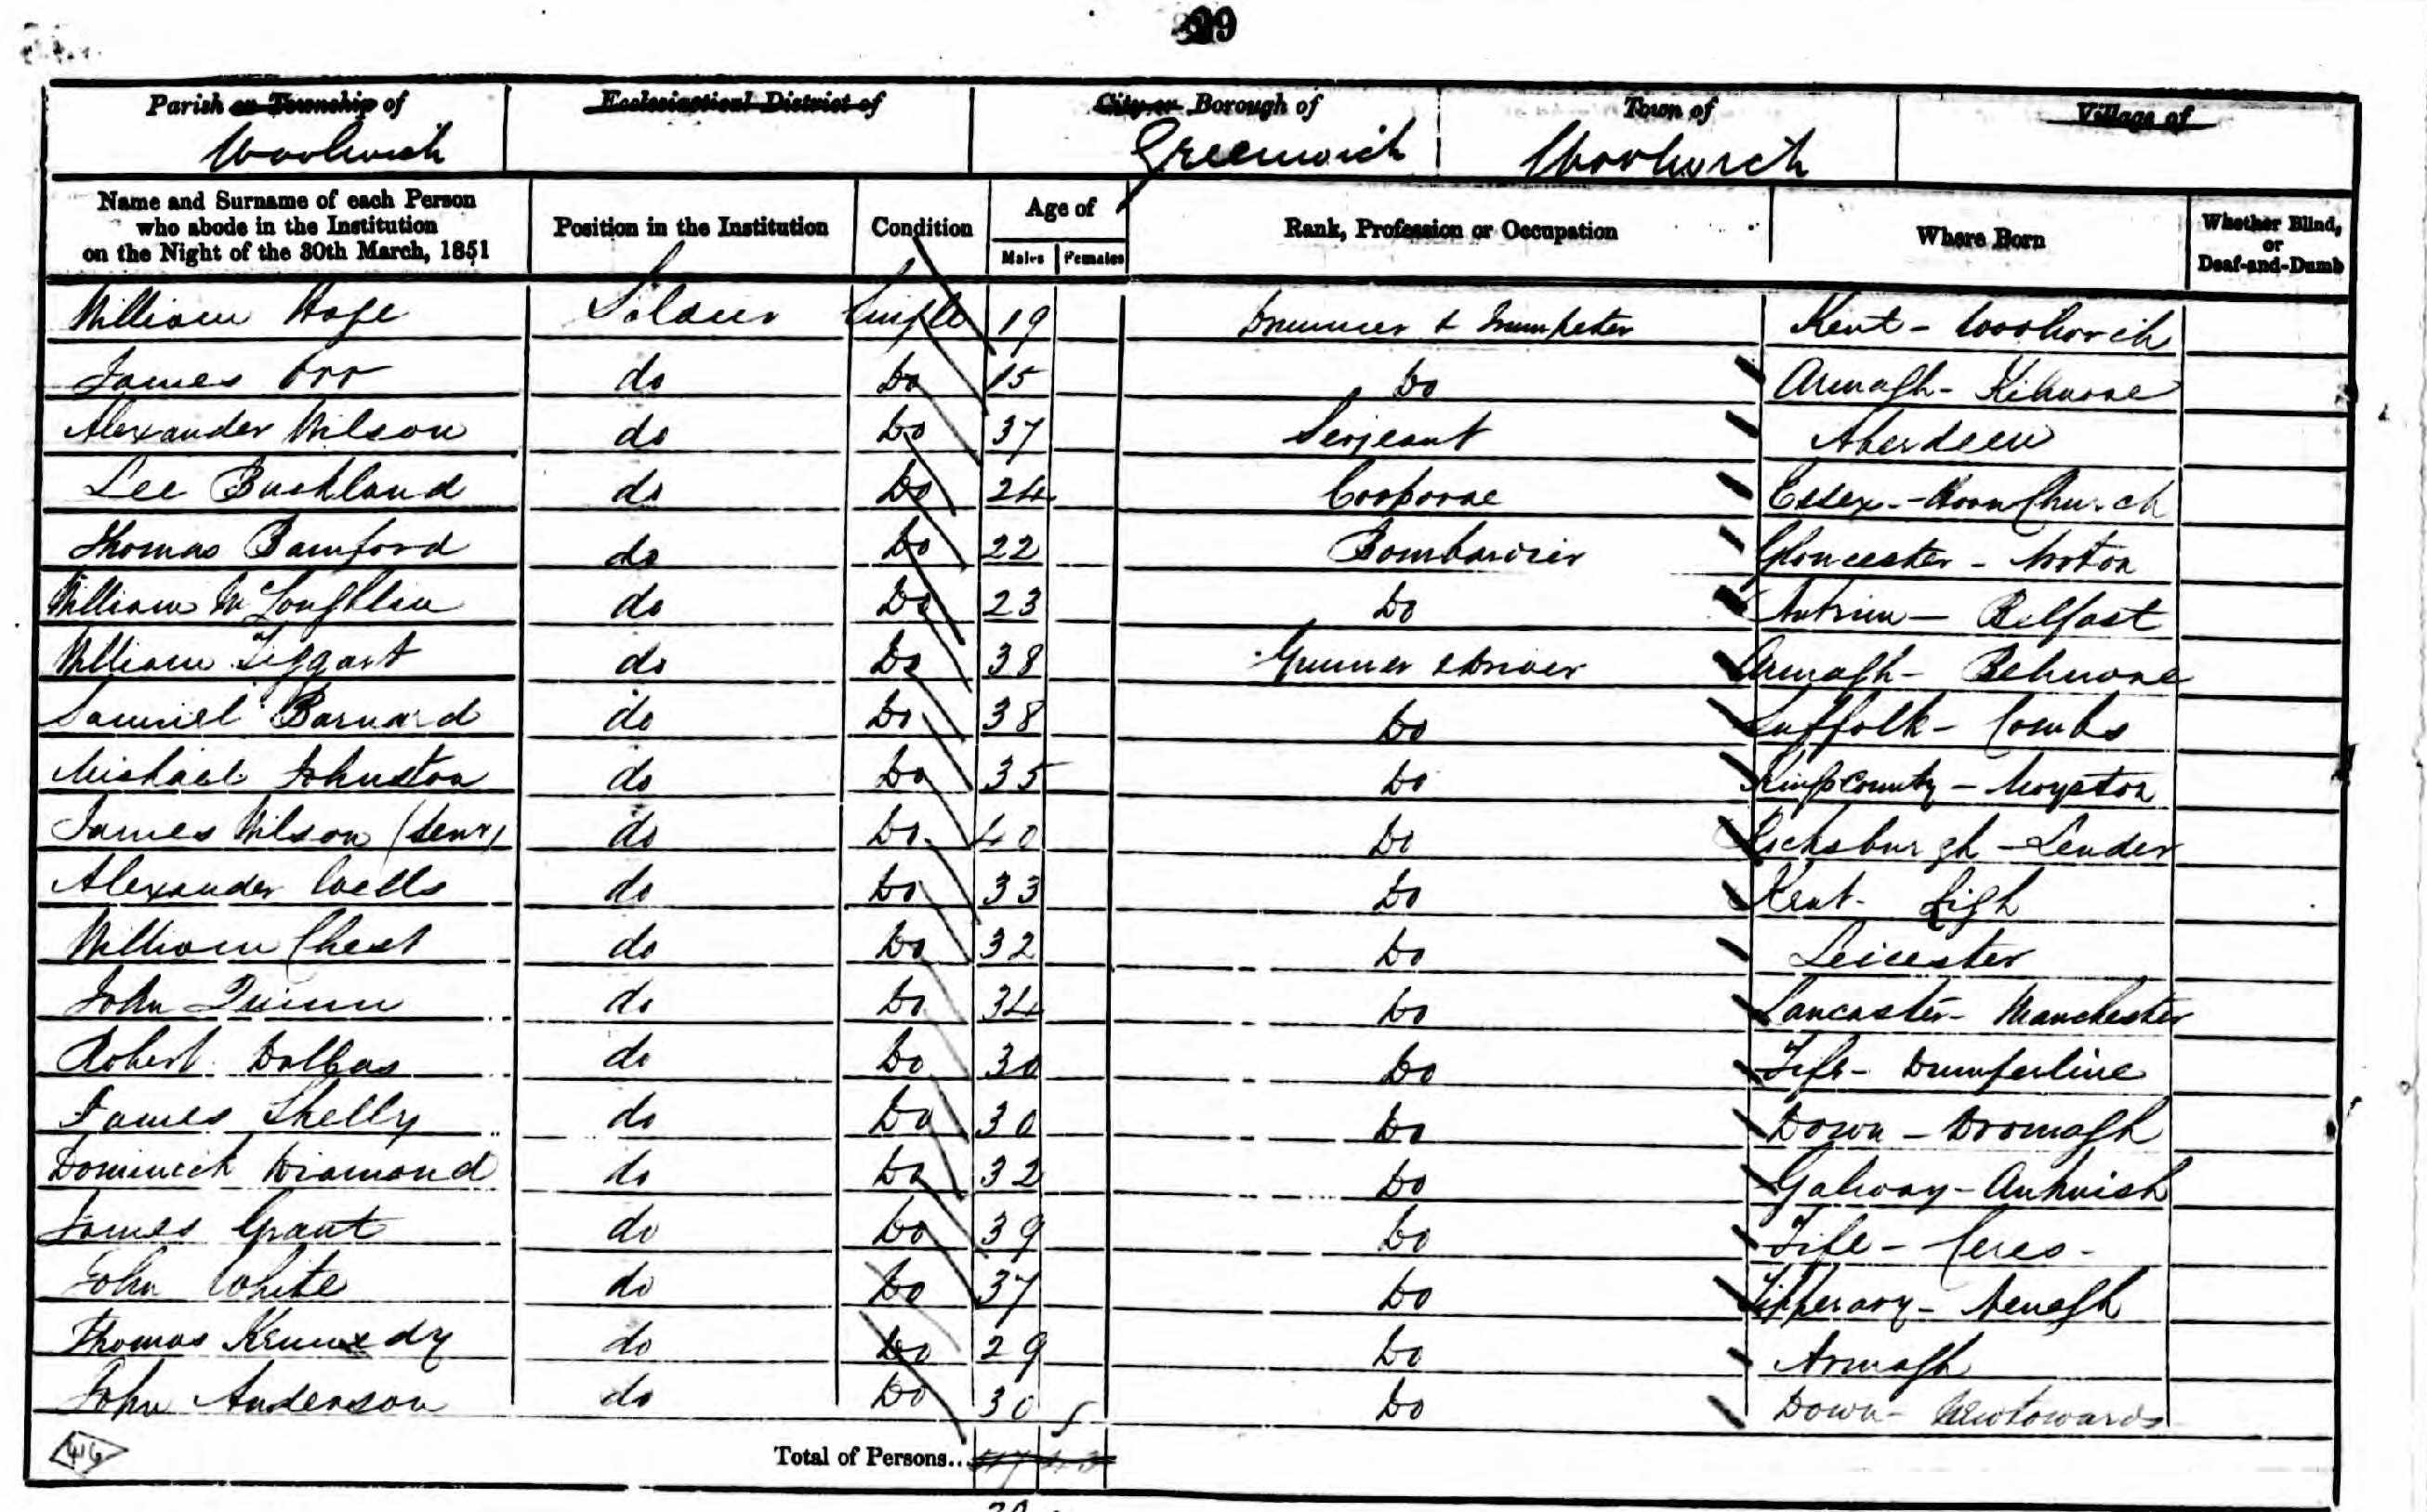 Parish or Township of
Woolwich
Ecclesiastical District of
City or Borough of
Greenwich
Town of
Woolwich
Village of
Name and Surname of each Person who abode in the Institution on the Night of the 30th March, 1851
Position in the Institution
Condition
Age of
Males Females
Rank, Profession or Occupation
Where Born
Whether Blind, or Deaf-and-Dumb
William Soldier Single 19 Drummer & Trumpeter Kent - Woolwich
James Orr do Do 15 Do Armagh - Kilmore
Alexander Wilson do Do 37 Serjeant Aberdeen
Lee Buckland do Do 24 Corporal Essex - Hornchurch
Thomas Bamford do Do 22 Bombardier Gloucester -
William McLoughlin do Do 23 Do Antrim - Belfast
William do Do 38 Gunner & Driver Armagh -
Samuel Barnard do Do 38 Do Suffolk - Combs
Michael Johnston do Do 35 Do Kings County -
James Wilson (Senr) do Do 40 Do
Alexander Wells do Do 33 Do Kent - Ligh
William Chest do Do 32 Do Leicester
John Quinn do Do 34 Do Lancaster - Manchester
Robert do Do 30 Do Fife - Dumferline
James Shelly do Do 30 Do Down - Dromagh
Dominick Diamond do Do 32 Do Galway -
James Grant do Do 39 Do Fife - Ceres -
John White do Do 37 Do Tipperary - Nenagh
Thomas Kennedy do Do 29 Do Armagh
John Anderson do Do 30 Do Down - Newtowards
Total of Persons...